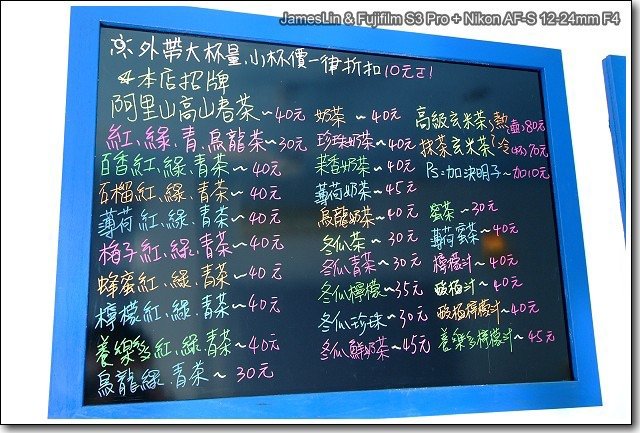 JamesLin & Fujifilm S3 Pro + Nikon AF-S 12-24mm F4
※外帶大杯量,小杯價一律折扣10元!
本店招牌
阿里山高山春茶~40元
紅、綠、青、烏龍茶~30元
百香紅、綠、青茶~40元
石榴紅、綠、青茶~40元
薄荷紅、綠、青茶~40元
梅子紅、綠、青茶~40元
蜂蜜紅、綠、青茶~40元
檸檬紅、綠、青茶~40元
養樂多紅、綠、青茶~40元
烏龍綠、青茶~30元
奶茶~40元
珍珠奶茶~40元
茉香奶茶~40元
薄荷奶茶~45元
烏龍奶茶~40元
冬瓜茶~30元
冬瓜青茶~30元
冬瓜檸檬~35元
冬瓜珍珠~30元
冬瓜鮮奶茶~45元
高級玄米茶 熱(壺)80元
抹茶玄米茶 冷(杯)70元
Ps=加決明子~加10元
蜜茶~30元
薄荷蜜茶~40元
檸檬汁~40元
酸梅汁~40元
酸梅檸檬汁~40元
養樂多檸檬汁~45元